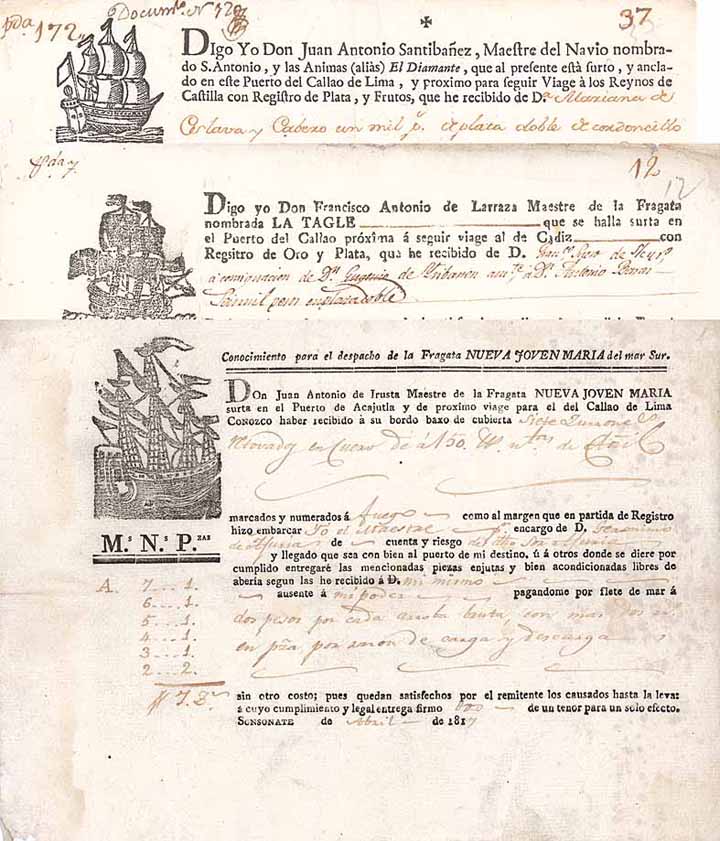 pda 172
Documto. N 729
37
✠
DIgo Yo Don Juan Antonio Santibañez, Maestre del Navio nombra-
do S. Antonio, y las Animas (aliàs) El Diamante, que al presente està surto, y ancla-
do en este Puerto del Callao de Lima, y proximo para seguir Viage à los Reynos de
Castilla con Registro de Plata, y Frutos, que he recibido de Da. Mariana de
y Cabero un mil ps. de plata doble de cordoncillo
pda 7
12
12
Digo yo Don Francisco Antonio de Larraza Maestre de la Fragata
nombrada LA TAGLE que se halla surta en
el Puerto del Callao próxima á seguir viage al de Cadiz con
Regsitro de Oro y Plata, que he recibido de D.
a consignacion de Dn. Eugenio de aute. á Dn. Antonio
mil pesos en plata doble
Conocimiento para el despacho de la Fragata NUEVA JOVEN MARIA del mar Sur.
DOn Juan Antonio de Irusta Maestre de la Fragata NUEVA JOVEN MARIA
surta en el Puerto de Acajutla y de proximo viage para el del Callao de Lima
CONOZCO haber recibido á su bordo baxo de cubierta Siete Zurrones
en Cuero de á 150 de
marcados y numerados á fuego como al margen que en partida de Registro
hizo embarcar Yo el Maestre pr. encargo de D. Geronimo
de Asturia de cuenta y riesgo del dho Asturia
y llegado que sea con bien al puerto de mi destino, ú á otros donde se diere por
cumplido entregaré las mencionadas piezas enjutas y bien acondicionadas libres de
abería segun las he recibido á D. mi mismo
ausente á mi poder pagandome por flete de mar á
dos pesos por cada arroba bruta, con mas dos
en pza. por razon de carga y descarga
M.s N.s P.zas
A. 7...1.
6...1.
5...1.
4...1.
3...1.
2...2.
sin otro costo; pues quedan satisfechos por el remitente los causados hasta la leva:
á cuyo cumplimiento y legal entrega firmo dos de un tenor para un solo efecto.
SONSONATE de Abril de 1817